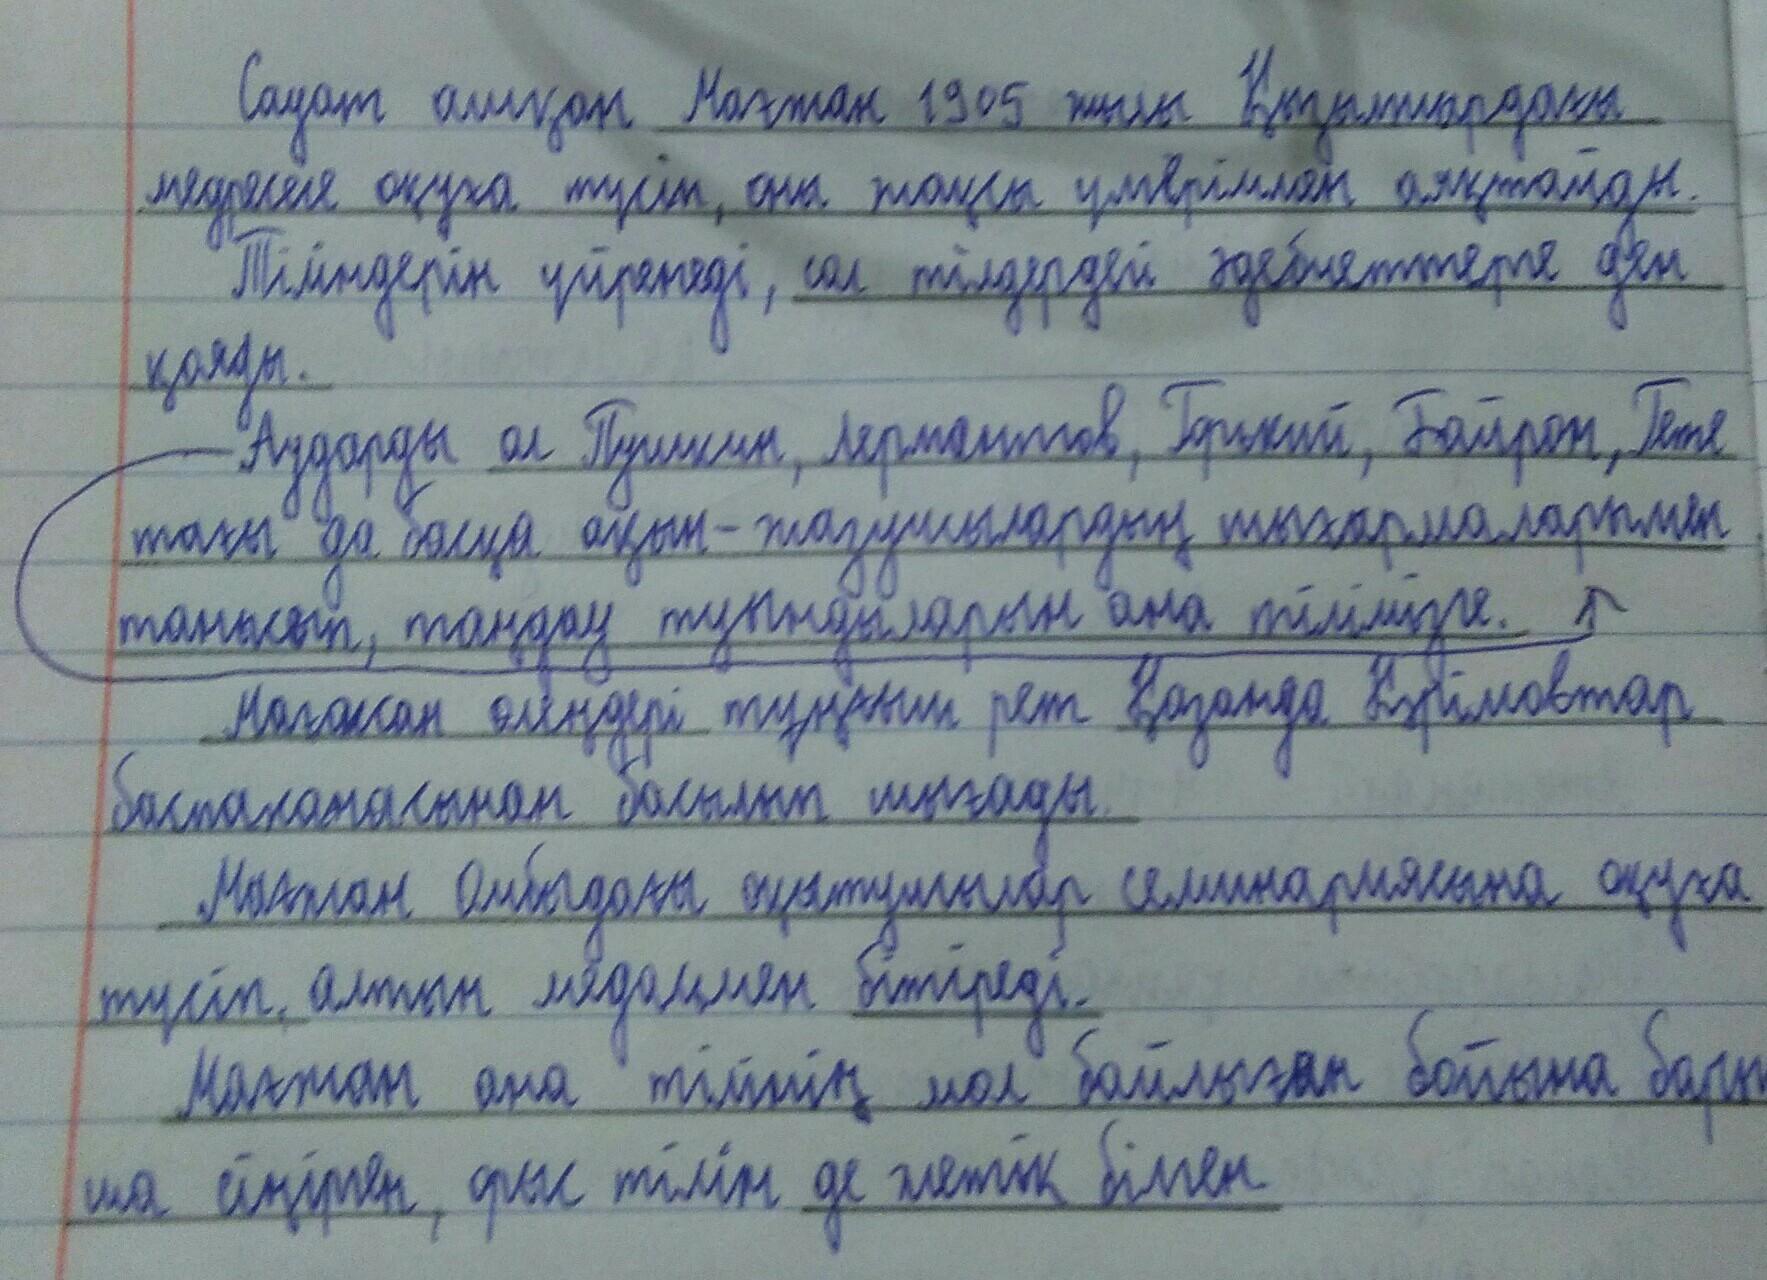 Сауат ашқан Мағжан 1905 жылы Қызылжардағы
медресеге оқуға түсіп, оны жақсы үлгеріммен аяқтайды.
Тіліндерін үйренеді, сол тілдердей әдебиеттерге ден
қояды.
Аударды ол Пушкин, Лермантов, Горький, Байрон, Гете
тағы да басқа ақын-жазушылардың шығармаларымен
танысып, таңдау туындыларын ана тілімізге.
Мағжан өлеңдері тұңғыш рет Қазанда Кәрімовтар
баспаханасынан басылып шығады.
Мағжан Омбыдағы оқытушылар семинариясына оқуға
түсіп, алтын медальмен бітіреді.
Мағжан ана тілінің мол байлығын бойына бары
ша сіңірген, орыс тілін де жетік білген